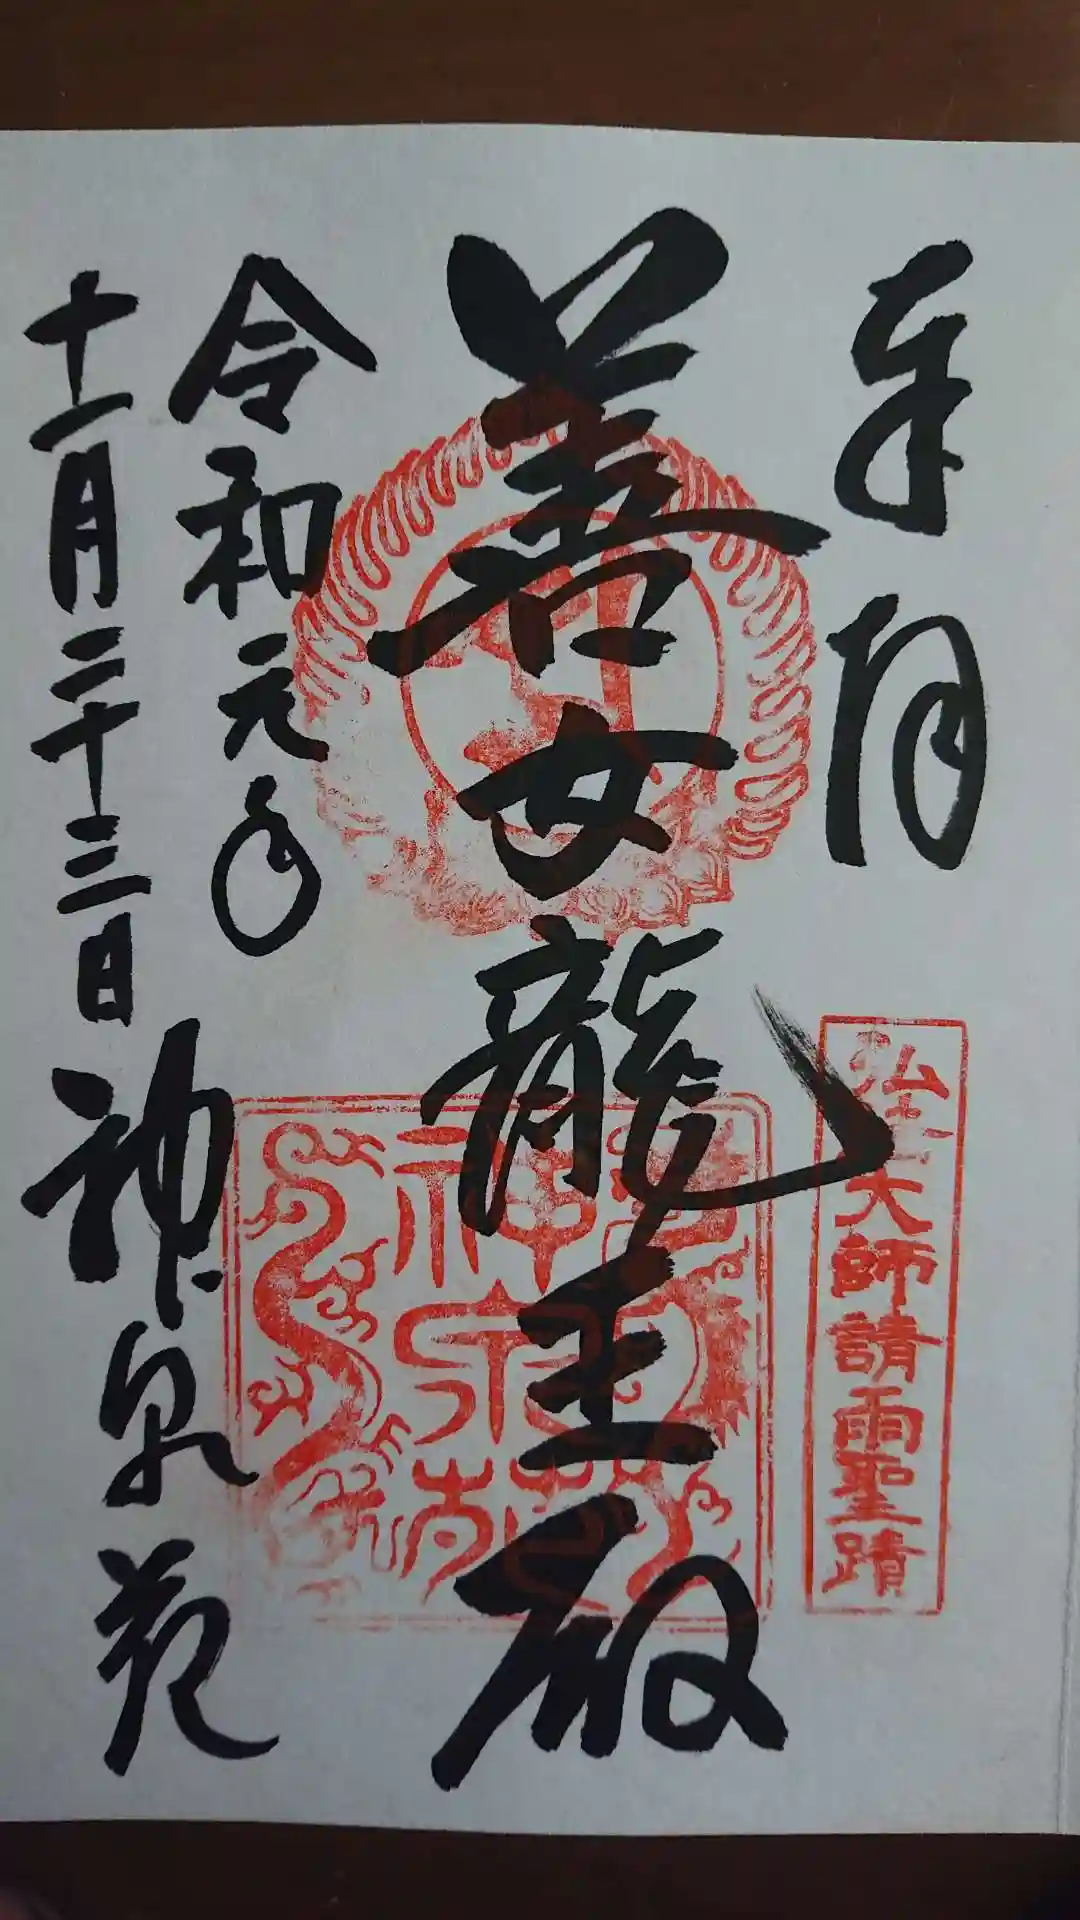 奉拝
弘法大師請雨聖蹟
善女龍王殿
神泉苑
令和元年
十一月二十三日 神泉苑